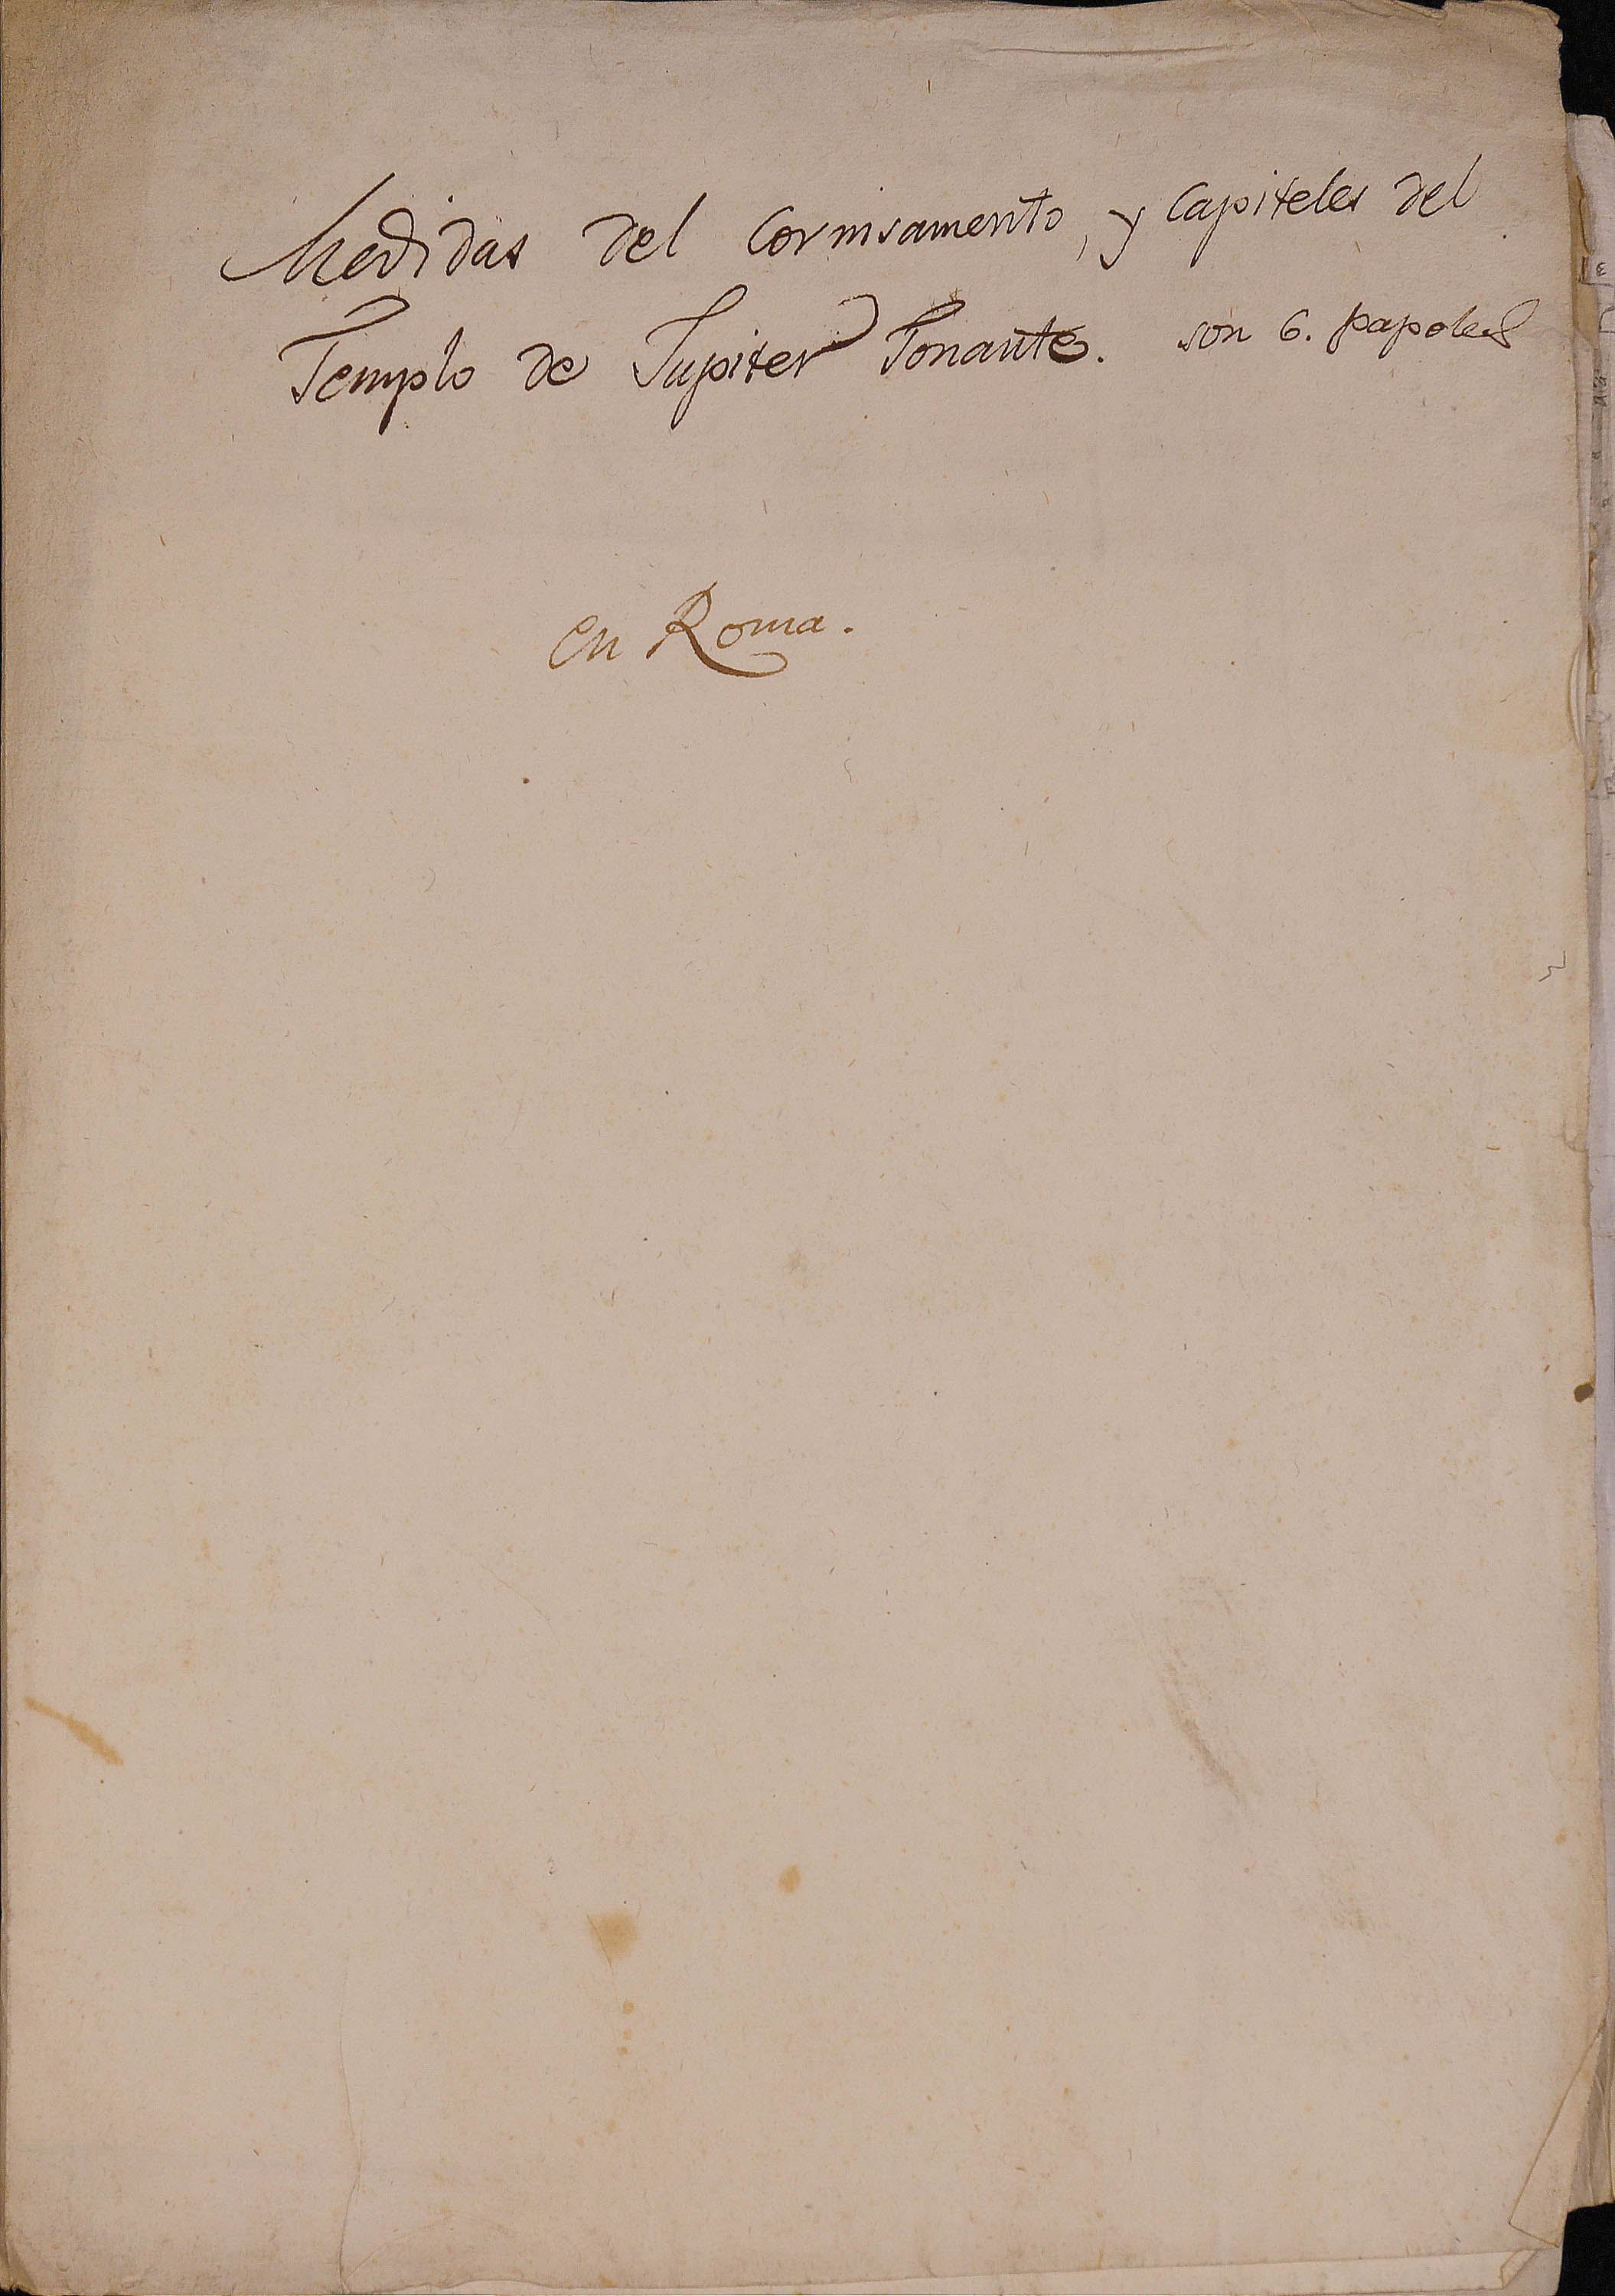 Medidas del Cornisamento, y Capiteles del
Templo de Jupiter Tonante. son 6. papeles
en Roma.